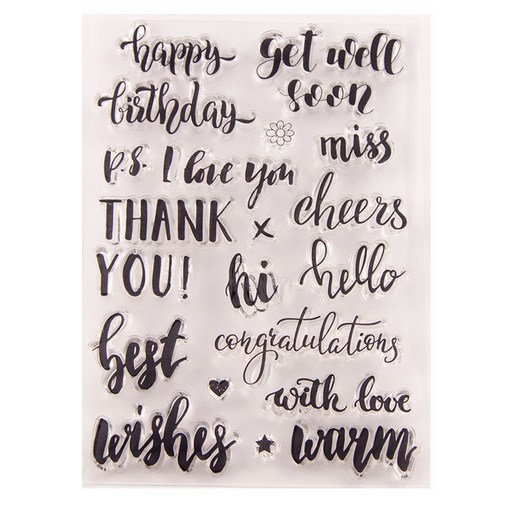 happy
birthday
get well
soon
miss
p.s. I love you
THANK x
YOU!
cheers
hi
hello
best
congratulations
with love
wishes
warm